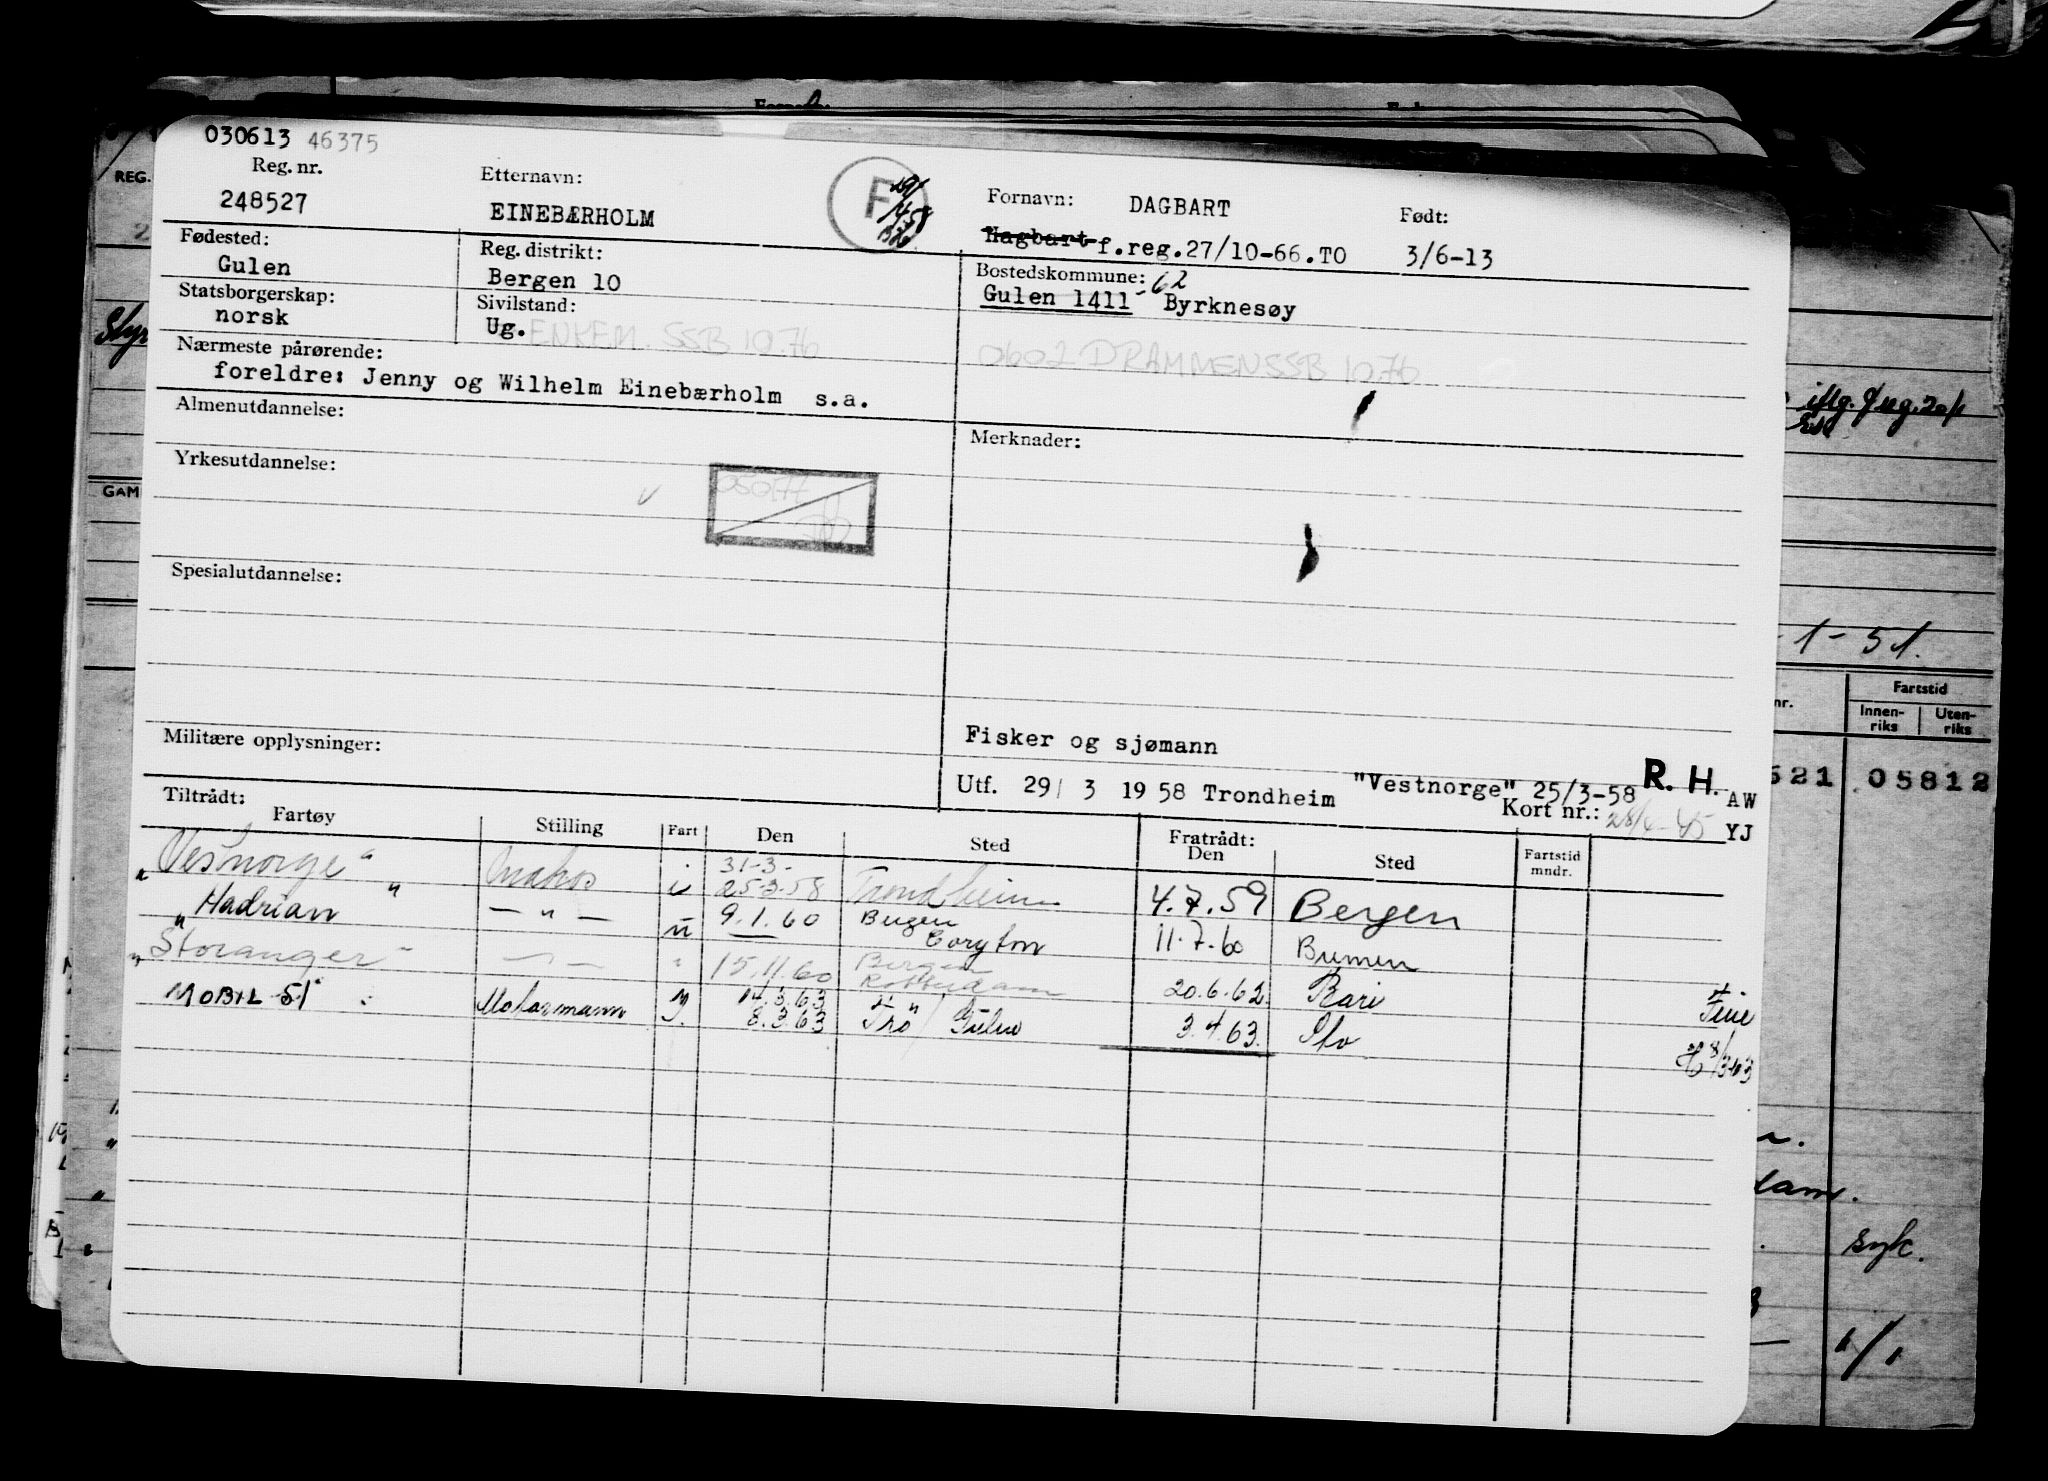 030613 46375
Reg. nr.
248527
Etternavn:
EINEBÆRHOLM
F
Fornavn: DAGBART
Hagbart f.reg.27/10-66.TO
Født:
3/6-13
Fødested:
Gulen
Reg. distrikt:
Bergen 10
Bostedskommune: 62
Gulen 1411 - Byrknesøy
Statsborgerskap:
norsk
Sivilstand:
Ug. ENKEM. SSB 10.76
0602 DRAMMEN SSB 10.76
Nærmeste pårørende:
foreldre: Jenny og Wilhelm Einebærholm s.a.
Almenutdannelse:
Merknader:
Yrkesutdannelse:
Spesialutdannelse:
Militære opplysninger:
Fisker og sjømann
Utf. 29/ 3 1958 Trondheim "Vestnorge" 25/3-58 R. H. AW
Kort nr.: YJ
Tiltrådt:
Fartøy Stilling Fart Den Sted Fratrådt: Den Sted Fartstid mndr.
31-3-
"Vestnorge" i 25-3-58 Trondheim 4.7.59 Bergen
"Hadrian" — " — u 9.1.60 Bergen Coryton 11.7.60 Bremen
"Storanger" — " — " 15.11.60 Bergen Rotterdam 20.6.62 Bari
MOBIL 51 14.3.63
8.3.63 3.4.63.
REG.
GAM
- 1 - 51.
nr.
Fartstid
Innen-riks Uten-riks
521 05812
syk.
1/1